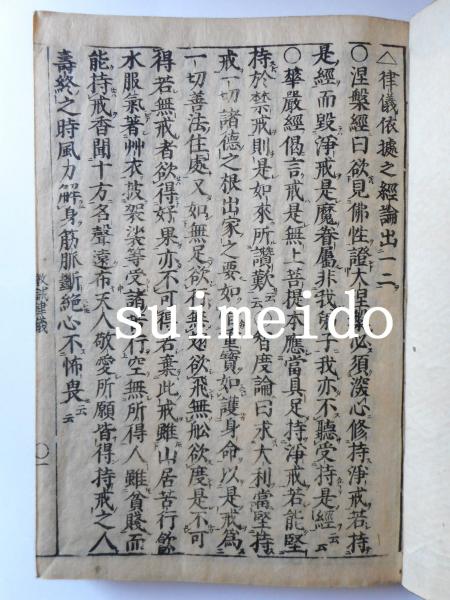 △律儀依據之經論出一二
○涅槃經曰欲見佛性證大涅槃必須深心修持淨戒若持
是經而毀淨戒是魔眷屬非我弟子我亦不聽受持是經云云
○華嚴經偈言戒是無上菩提本應當具足持淨戒若能堅
持於禁戒則是如來所讚歎云云 度論曰求大利當堅持
戒一切諸德之根出家之要如 重寶如護身命以是戒爲
一切善法住處又如無足欲行無翅欲飛無舩欲度是不可
得若無戒者欲得好果亦不可得若棄此戒雖山居苦行飲
水服氣著艸衣披袈裟等受諸苦行空無所得人雖貧賤而
能持戒香聞十方名聲遠布天人敬愛所願皆得持戒之人
壽終之時風力解身筋脈斷絕心不怖畏云云
教誡律儀
○一
suimeido